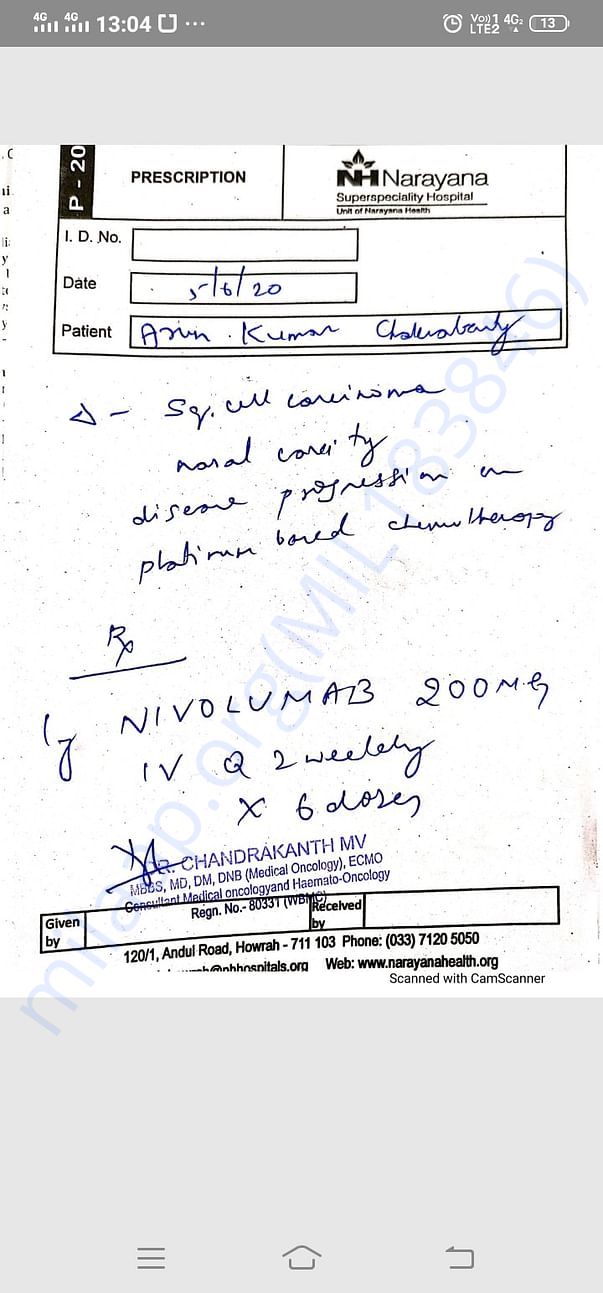 4G 4G 13:04 ···
Vo)) 1 4G2 LTE2 13
P - 20
PRESCRIPTION
NH Narayana
Superspeciality Hospital
Unit of Narayana Health
I. D. No.
Date 5/6/20
Patient Arun . Kumar Chakrabarty
Δ - Sq. cell carcinoma
nasal cavity
disease progression on
platinum based chemotherapy
Rx
Inj NIVOLUMAB 200MG
IV Q 2 weekly
X 6 doses
DR. CHANDRAKANTH MV
MBBS, MD, DM, DNB (Medical Oncology), ECMO
Consultant Medical oncologyand Haemato-Oncology
Regn. No.- 80331 (WBMC)
Given by
Received by
120/1, Andul Road, Howrah - 711 103 Phone: (033) 7120 5050
@nhhospitals.org Web: www.narayanahealth.org
Scanned with CamScanner
milaap.org(MIL 183846)